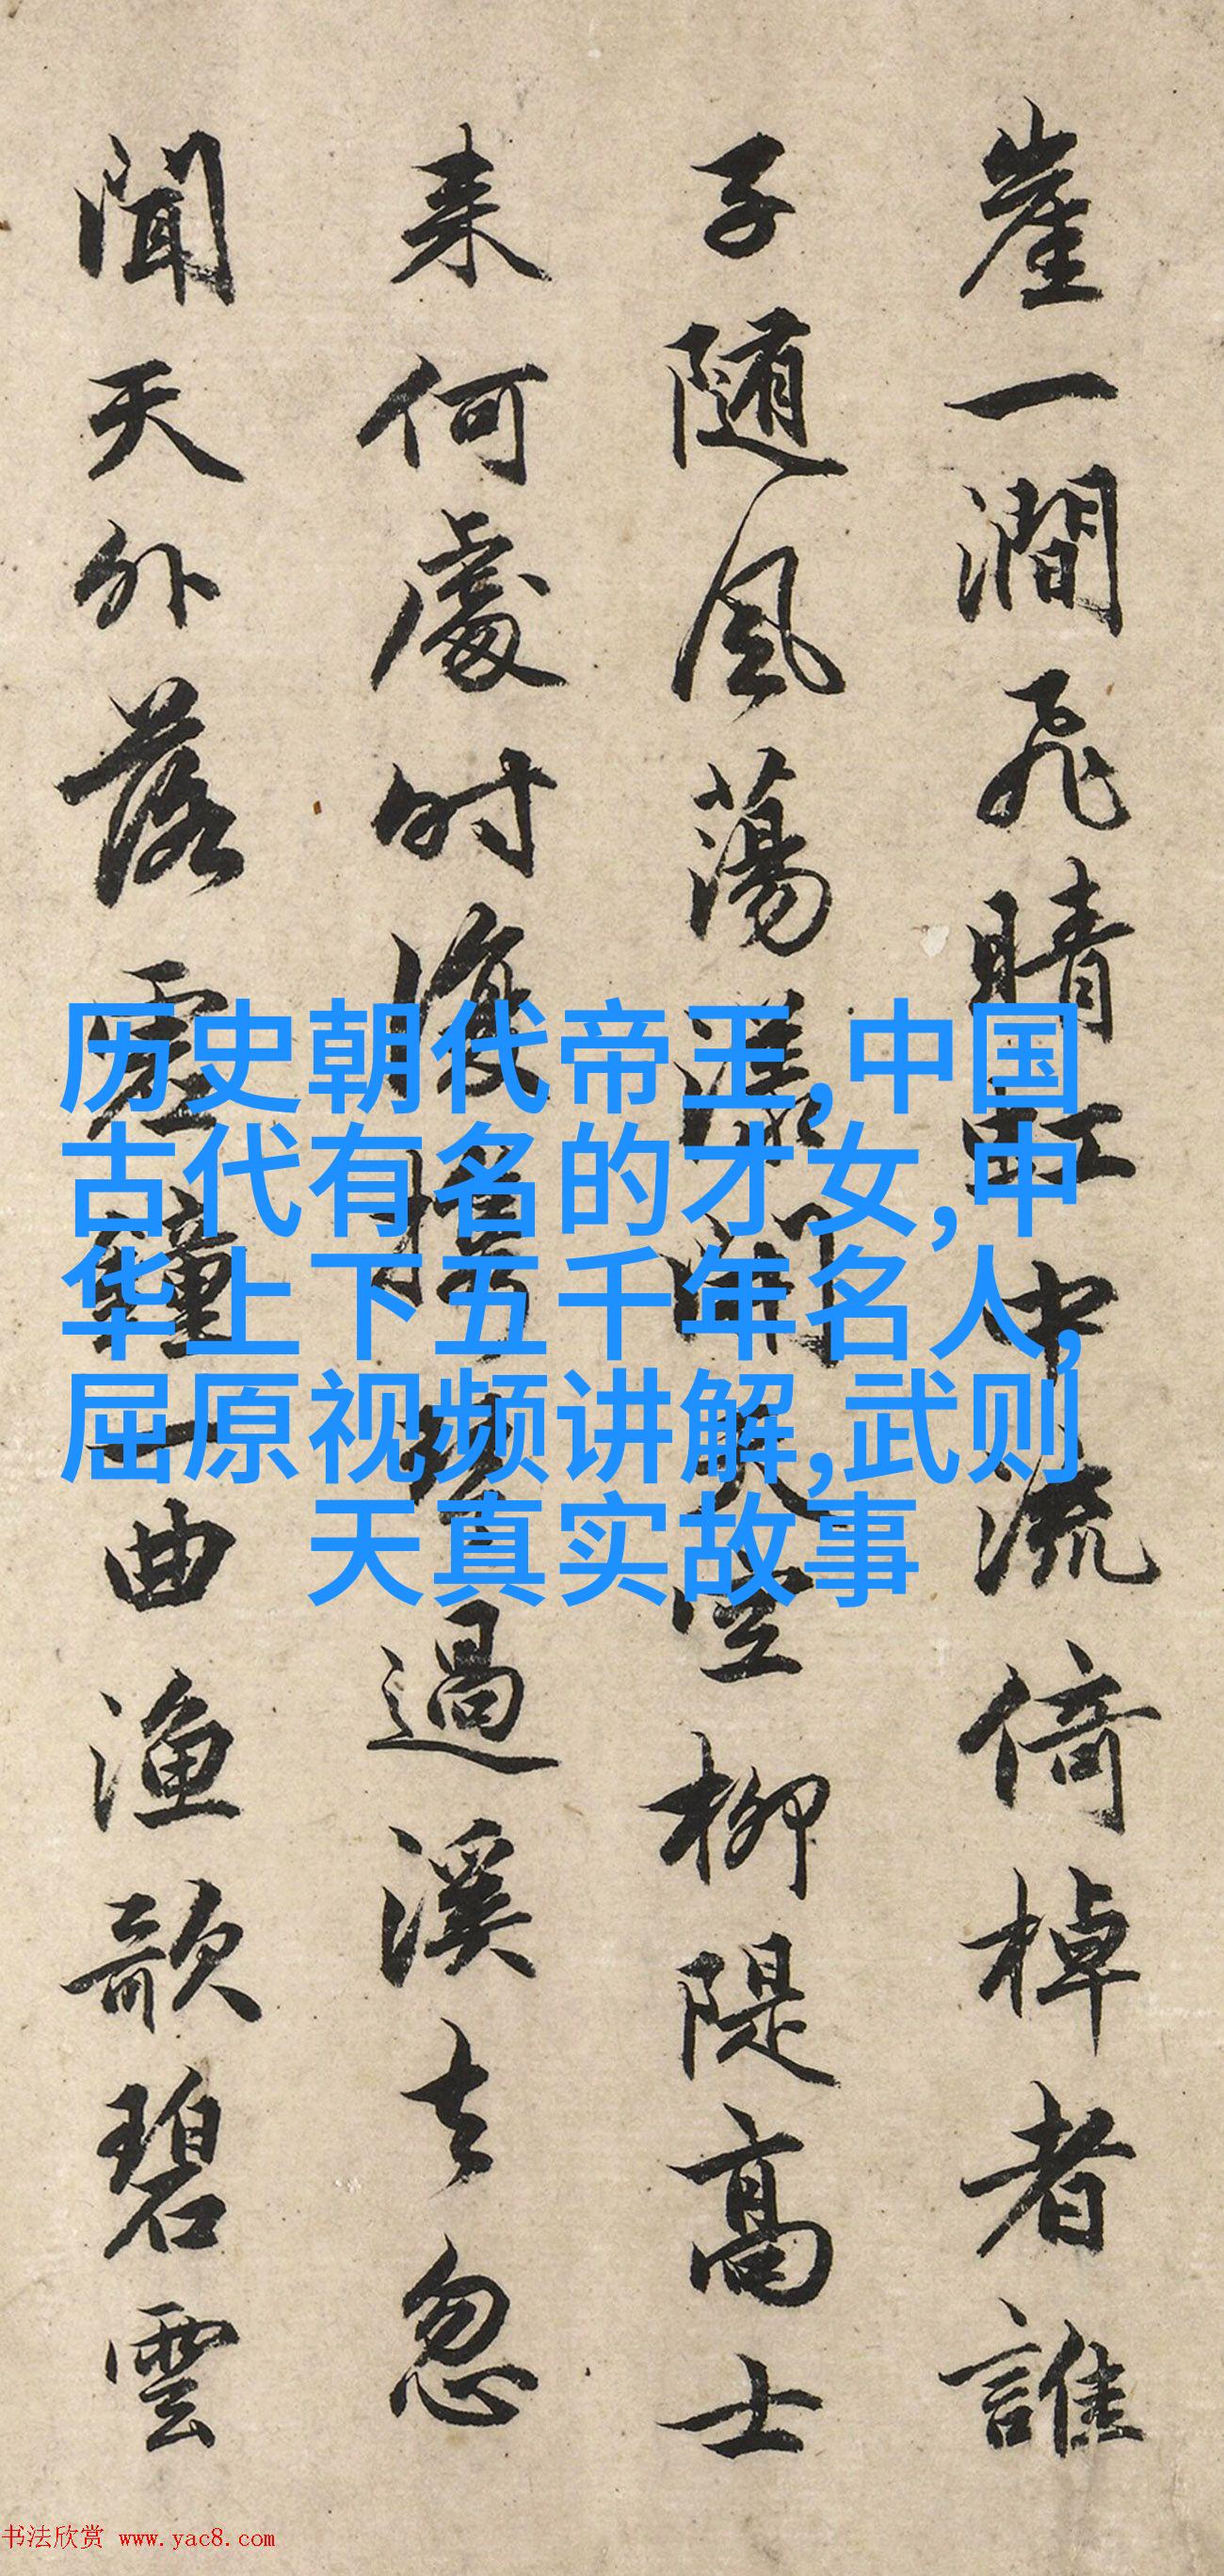 崖一澗飛晴虹中流倚棹者誰
子隨風蕩漾開天空柳隄高士
来何處时復摇琴過溪去忽
聞天外落靈鐘一曲漁歌碧雲
历史朝代帝王,中国
古代有名的才女,中
华上下五千年名人,
屈原视频讲解,武则
天真实故事
书法欣赏 www.yac8.com